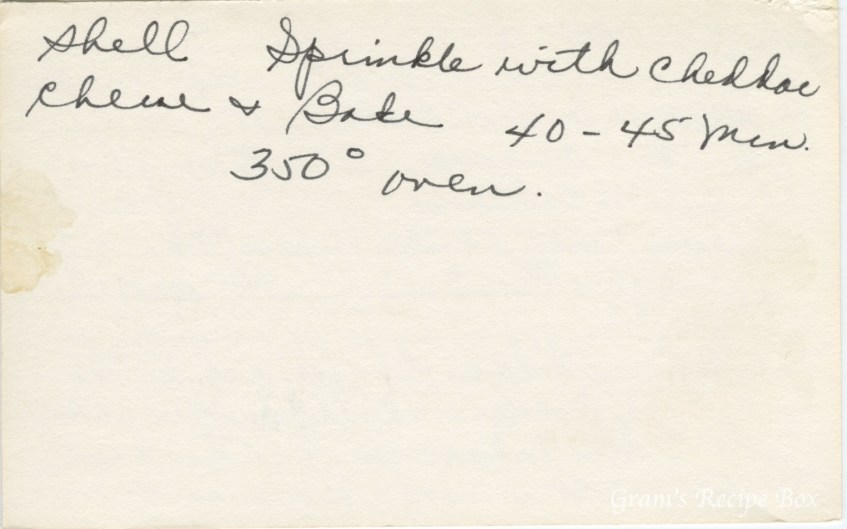 Shell Sprinkle with Cheddar
Cheese & Bake 40-45 Min.
350° oven.
Gram's Recipe Box